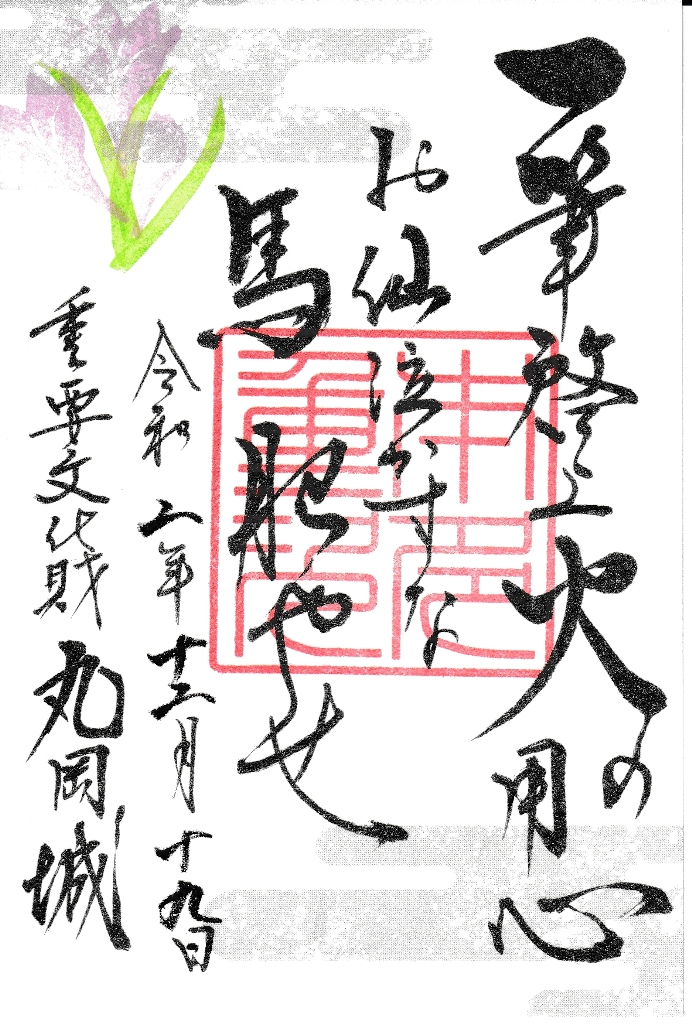 一筆啓上火の用心
お仙泣かすな
馬肥やせ
令和二年十二月十九日
重要文化財丸岡城